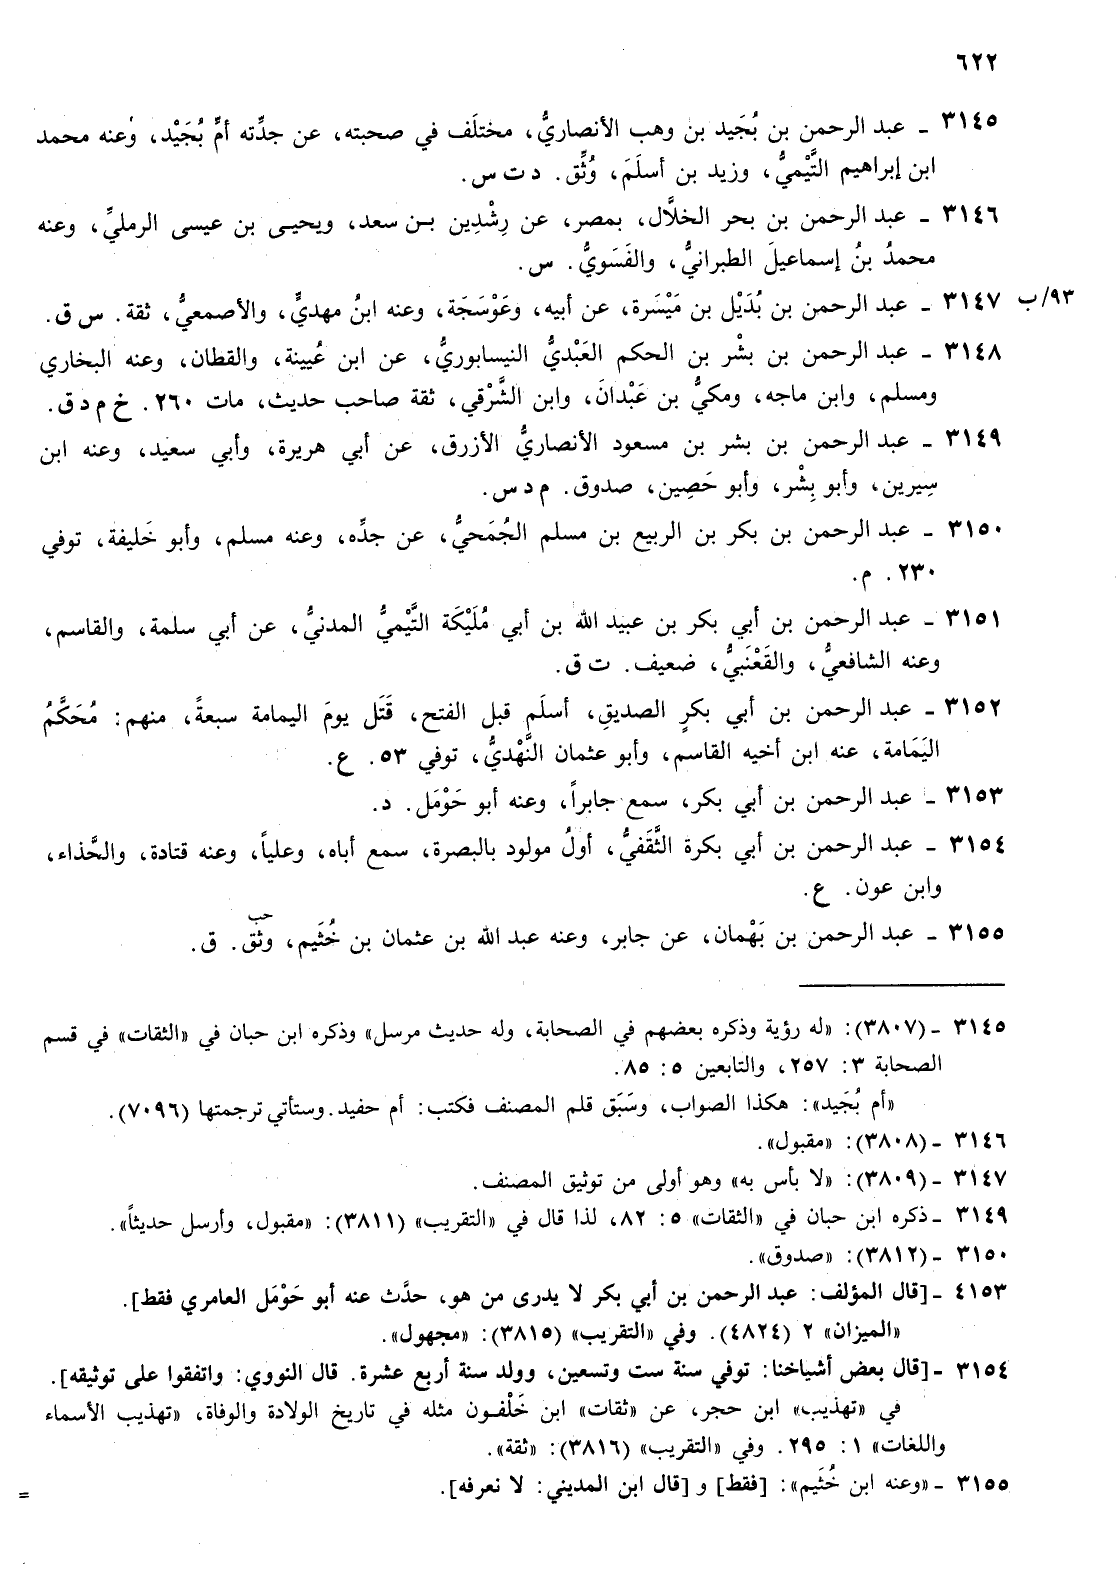 ٦٢٢
٣١٤٥ ـ عبد الرحمن بن بُجَيد بن وهب الأنصاريُّ، مختلَف في صحبته، عن جدِّته أمِّ بُجَيْد، وعنه محمد
ابن إبراهيم التَّيْميُّ، وزيد بن أسلَمَ، وُثِّق. د ت س.
٣١٤٦ ـ عبد الرحمن بن بحر الخلَّال، بمصر، عن رِشْدِين بـن سعد، ويحيـى بن عيسى الرمليِّ، وعنه
محمدُ بنُ إسماعيلَ الطبرانيُّ، والفَسَويُّ. س.
٣١٤٧ ـ عبد الرحمن بن بُدَيْل بن مَيْسَرة، عن أبيه، وعَوْسَجَة، وعنه ابنُ مهديٍّ، والأصمعيُّ، ثقة. س ق. ٩٣/ب
٣١٤٨ ـ عبد الرحمن بن بشْر بن الحكم العَبْديُّ النيسابوريُّ، عن ابن عُيينة، والقطان، وعنه البخاري
ومسلم، وابن ماجه، ومكيُّ بن عَبْدانَ، وابن الشَّرْقي، ثقة صاحب حديث، مات ٢٦٠. خ م د ق.
٣١٤٩ ـ عبد الرحمن بن بشر بن مسعود الأنصاريُّ الأزرق، عن أبي هريرة، وأبي سعيد، وعنه ابن
سِيرين، وأبو بِشْر، وأبو حَصِين، صدوق. م د س.
٣١٥٠ ـ عبد الرحمن بن بكر بن الربيع بن مسلم الجُمَحيُّ، عن جدِّه، وعنه مسلم، وأبو خَليفة، توفي
٢٣٠. م.
٣١٥١ ـ عبد الرحمن بن أبي بكر بن عبيد الله بن أبي مُلَيْكَة التَّيْميُّ المدنيُّ، عن أبي سلمة، والقاسم،
وعنه الشافعيُّ، والقَعْنَبيُّ، ضعيف. ت ق.
٣١٥٢ ـ عبد الرحمن بن أبي بكرٍ الصديقِ، أسلَم قبل الفتح، قَتَل يومَ اليمامة سبعةً، منهم: مُحَكَّمُ
اليَمَامة، عنه ابن أخيه القاسم، وأبو عثمان النَّهْديُّ، توفي ٥٣. ع.
٣١٥٣ ـ عبد الرحمن بن أبي بكر، سمع جابراً، وعنه أبو حَوْمَل. د.
٣١٥٤ ـ عبد الرحمن بن أبي بكرة الثَّقَفيُّ، أولُ مولود بالبصرة، سمع أباه، وعلياً، وعنه قتادة، والحَّذاء،
وابن عون. ع.
٣١٥٥ ـ عبد الرحمن بن بَهْمان، عن جابر، وعنه عبد الله بن عثمان بن خُثَيم، وثق. ق.
حب
٣١٤٥ ـ (٣٨٠٧): «له رؤية وذكره بعضهم في الصحابة، وله حديث مرسل» وذكره ابن حبان في «الثقات» في قسم
الصحابة ٣: ٢٥٧، والتابعين ٥: ٨٥.
«أم بُجَيد»: هكذا الصواب، وسَبَق قلم المصنف فكتب: أم حفيد. وستأتي ترجمتها (٧٠٩٦).
٣١٤٦ ـ (٣٨٠٨): «مقبول».
٣١٤٧ ـ (٣٨٠٩): «لا بأس به» وهو أولى من توثيق المصنف.
٣١٤٩ ـ ذكره ابن حبان في «الثقات» ٥: ٨٢، لذا قال في «التقريب» (٣٨١١): «مقبول، وأرسل حديثاً».
٣١٥٠ ـ (٣٨١٢): «صدوق».
٤١٥٣ ـ [قال المؤلف: عبد الرحمن بن أبي بكر لا يدرى من هو، حدَّث عنه أبو حَوْمَل العامري فقط].
«الميزان» ٢ (٤٨٢٤). وفي «التقريب» (٣٨١٥): «مجهول».
٣١٥٤ ـ [قال بعض أشياخنا: توفي سنة ست وتسعين، وولد سنة أربع عشرة. قال النووي: واتفقوا على توثيقه].
في «تهذيب» ابن حجر، عن «ثقات» ابن خَلْفـون مثله في تاريخ الولادة والوفاة، «تهذيب الأسماء
واللغات» ١: ٢٩٥. وفي «التقريب» (٣٨١٦): «ثقة».
٣١٥٥ ـ «وعنه ابن خُثَيم»: [فقط] و [قال ابن المديني: لا نعرفه].
=